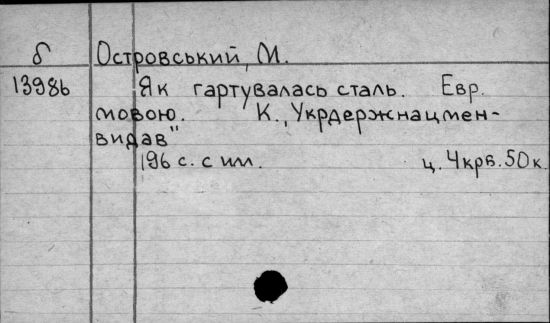 б Островський, М.
13986 Як гартувалась сталь. Евр.
мовою. К. „Укрдержнацмен-
видав"
196 с. с илл. ц. 4крв. 50к.